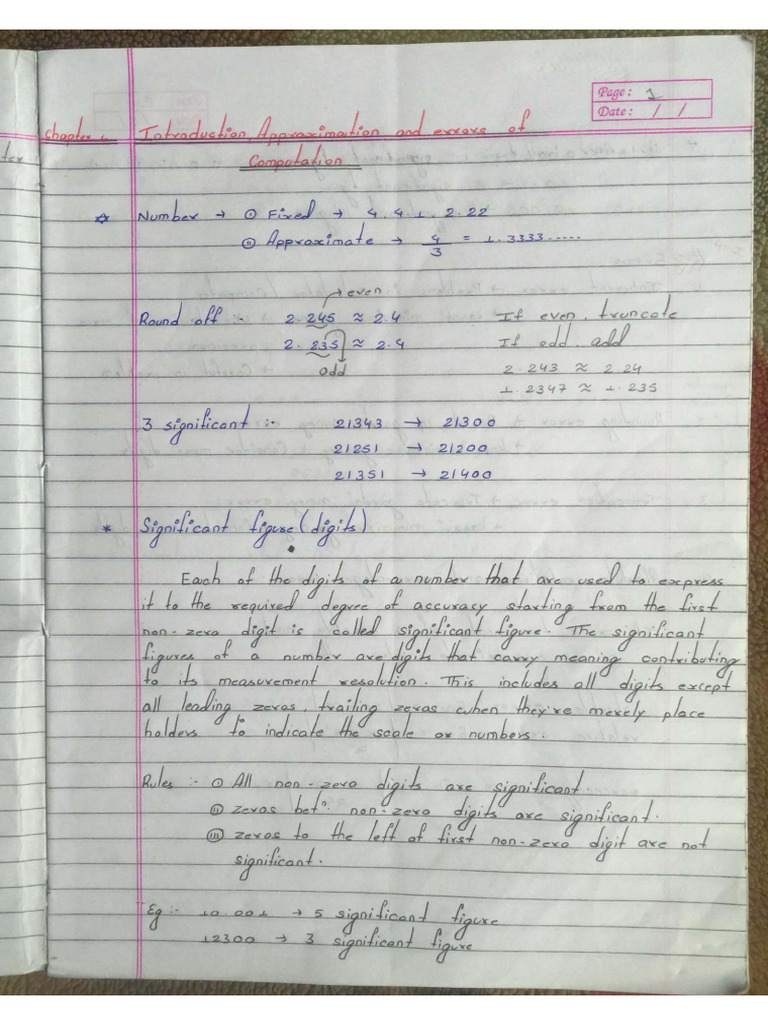 Page: 1
Date: / /
Chapter 1 Introduction, Approximation and errors of
Computation
Number → (i) Fixed → 4, 4.1, 2.22
(ii) Approximate → 4/3 = 1.3333.....
→ even
Round off :- 2.245 ≈ 2.4 If even, truncate
2.235 ≈ 2.4 If odd, add
odd 2.243 ≈ 2.24
1.2347 ≈ 1.235
3 significant :- 21343 → 21300
21251 → 21200
21351 → 21400
* Significant figure (digits)
Each of the digits of a number that are used to express
it to the required degree of accuracy starting from the first
non-zero digit is called significant figure. The significant
figures of a number are digits that carry meaning contributing
to its measurement resolution. This includes all digits except
all leading zeros, trailing zeros when they're merely place
holders to indicate the scale or numbers.
Rules :- (i) All non-zero digits are significant.
(ii) zeros betⁿ non-zero digits are significant.
(iii) zeros to the left of first non-zero digit are not
significant.
Eg :- 10.001 → 5 significant figure
12300 → 3 significant figure